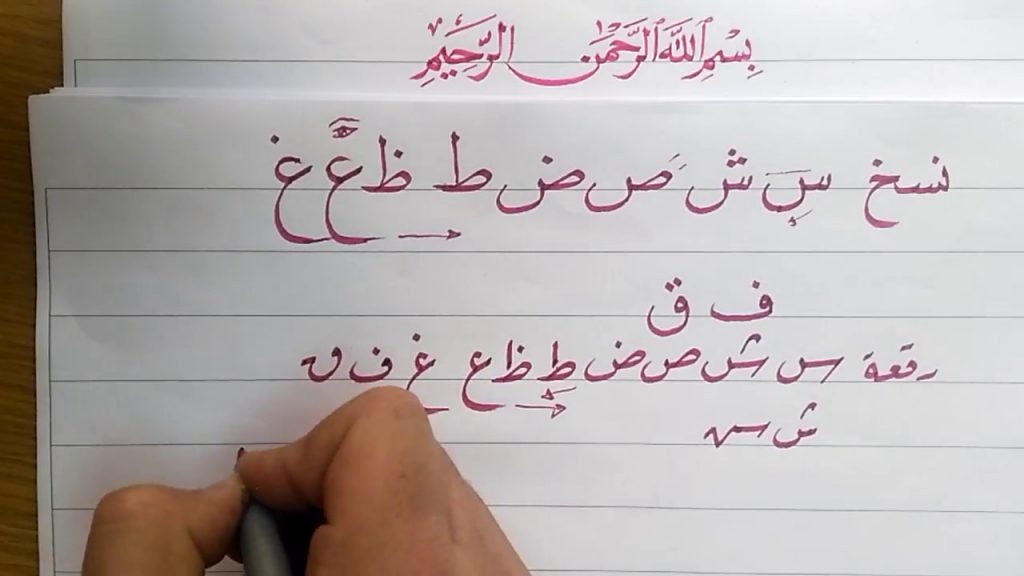 بِسْمِ اللَّهِ الرَّحْمَنِ الرَّحِيمِ
نسخ سَ ش صَ ض ط ظ عَّ غ
ف ق
رقعة س ش ص ض ط ظ ع غ ف ق
ش س